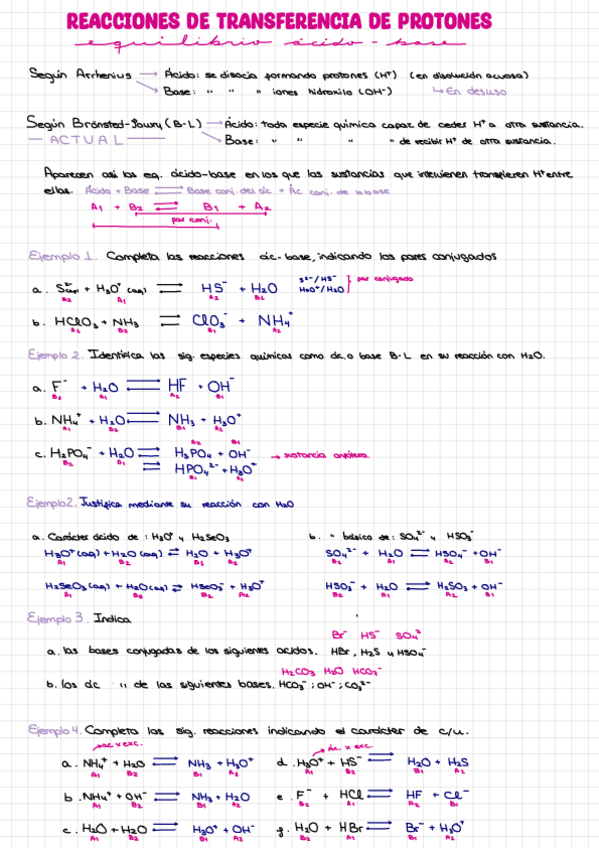 REACCIONES DE TRANSFERENCIA DE PROTONES
equilibrio ácido - base
Según Arrhenius → Ácido: se disocia formando protones (H⁺) (en disolución acuosa)
→ Base: " " " iones hidroxilo (OH⁻) ↳ En desuso
Según Brönsted-Lowry (B-L) → Ácido: toda especie química capaz de ceder H⁺ a otra sustancia.
— ACTUAL — → Base: " " " " de recibir H⁺ de otra sustancia.
Aparecen así los eq. ácido-base en los que las sustancias que intervienen transfieren H⁺ entre
ellas. Ácido + Base ⇌ Base conj. del ác + Ác conj. de la base
A₁ + B₂ ⇌ B₁ + A₂
par conj.
Ejemplo 1. Completa las reacciones ác-base, indicando los pares conjugados
a. S²⁻(aq) + H₃O⁺ (aq) ⇌ HS⁻ + H₂O S²⁻/HS⁻ par conjugado
B₂ A₁ A₂ B₁ H₃O⁺/H₂O
b. HClO₃ + NH₃ ⇌ ClO₃⁻ + NH₄⁺
A₁ B₂ B₁ A₂
Ejemplo 2. Identifica las sig. especies químicas como ác. o base B-L en su reacción con H₂O.
a. F⁻ + H₂O ⇌ HF + OH⁻
B₂ A₁ A₂ B₁
b. NH₄⁺ + H₂O ⇌ NH₃ + H₃O⁺
A₁ B₂ B₁ A₂
A₂ B₁
c. H₂PO₄⁻ + H₂O ⇌ H₃PO₄ + OH⁻ → sustancia anfótera
B₂ A₁ ⇌ HPO₄²⁻ + H₃O⁺
B₁ A₂
Ejemplo2. Justifica mediante su reacción con H₂O
a. Carácter ácido de : H₃O⁺ y H₂SeO₃ b. " básico de: SO₄²⁻ y HSO₃⁻
H₃O⁺(aq) + H₂O (aq) ⇌ H₂O + H₃O⁺ SO₄²⁻ + H₂O ⇌ HSO₄⁻ + OH⁻
A₁ B₂ B₁ A₂ B₂ A₁ A₂ B₁
H₂SeO₃ (aq) + H₂O (aq) ⇌ HSeO₃⁻ + H₃O⁺ HSO₃⁻ + H₂O ⇌ H₂SO₃ + OH⁻
A₁ B₂ B₁ A₂ B₂ A₁ A₂ B₁
Ejemplo 3. Indica
Br⁻ HS⁻ SO₄²⁻
a. las bases conjugadas de los siguientes ácidos. HBr, H₂S y HSO₄⁻
H₂CO₃ H₂O HCO₃⁻
b. los ác " de las siguientes bases. HCO₃⁻; OH⁻; CO₃²⁻
Ejemplo 4. Completa las sig. reacciones indicando el carácter de c/u.
ác x exc. ác. x exc.
a. NH₄⁺ + H₂O ⇌ NH₃ + H₃O⁺ d. H₃O⁺ + HS⁻ ⇌ H₂O + H₂S
A₁ B₂ B₁ A₂ A₁ B₂ B₁ A₂
b. NH₄⁺ + OH⁻ ⇌ NH₃ + H₂O e. F⁻ + HCl ⇌ HF + Cl⁻
A₁ B₂ B₁ A₂ B₂ A₁ A₂ B₁
c. H₂O + H₂O ⇌ H₃O⁺ + OH⁻ f. H₂O + HBr ⇌ Br⁻ + H₃O⁺